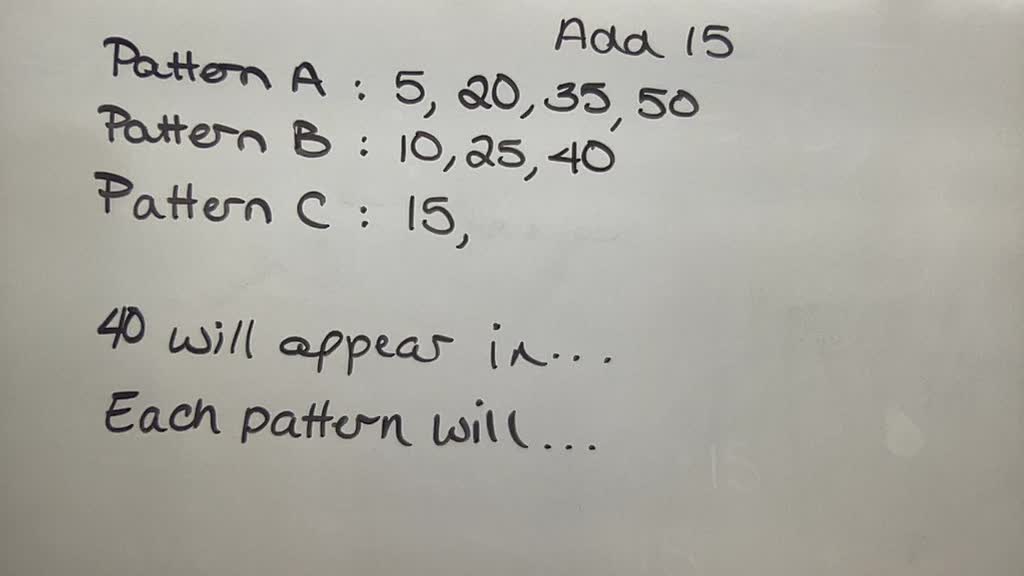 Add 15
Pattern A : 5, 20, 35, 50
Pattern B : 10, 25, 40
Pattern C : 15,
40 will appear in...
Each pattern will...
15